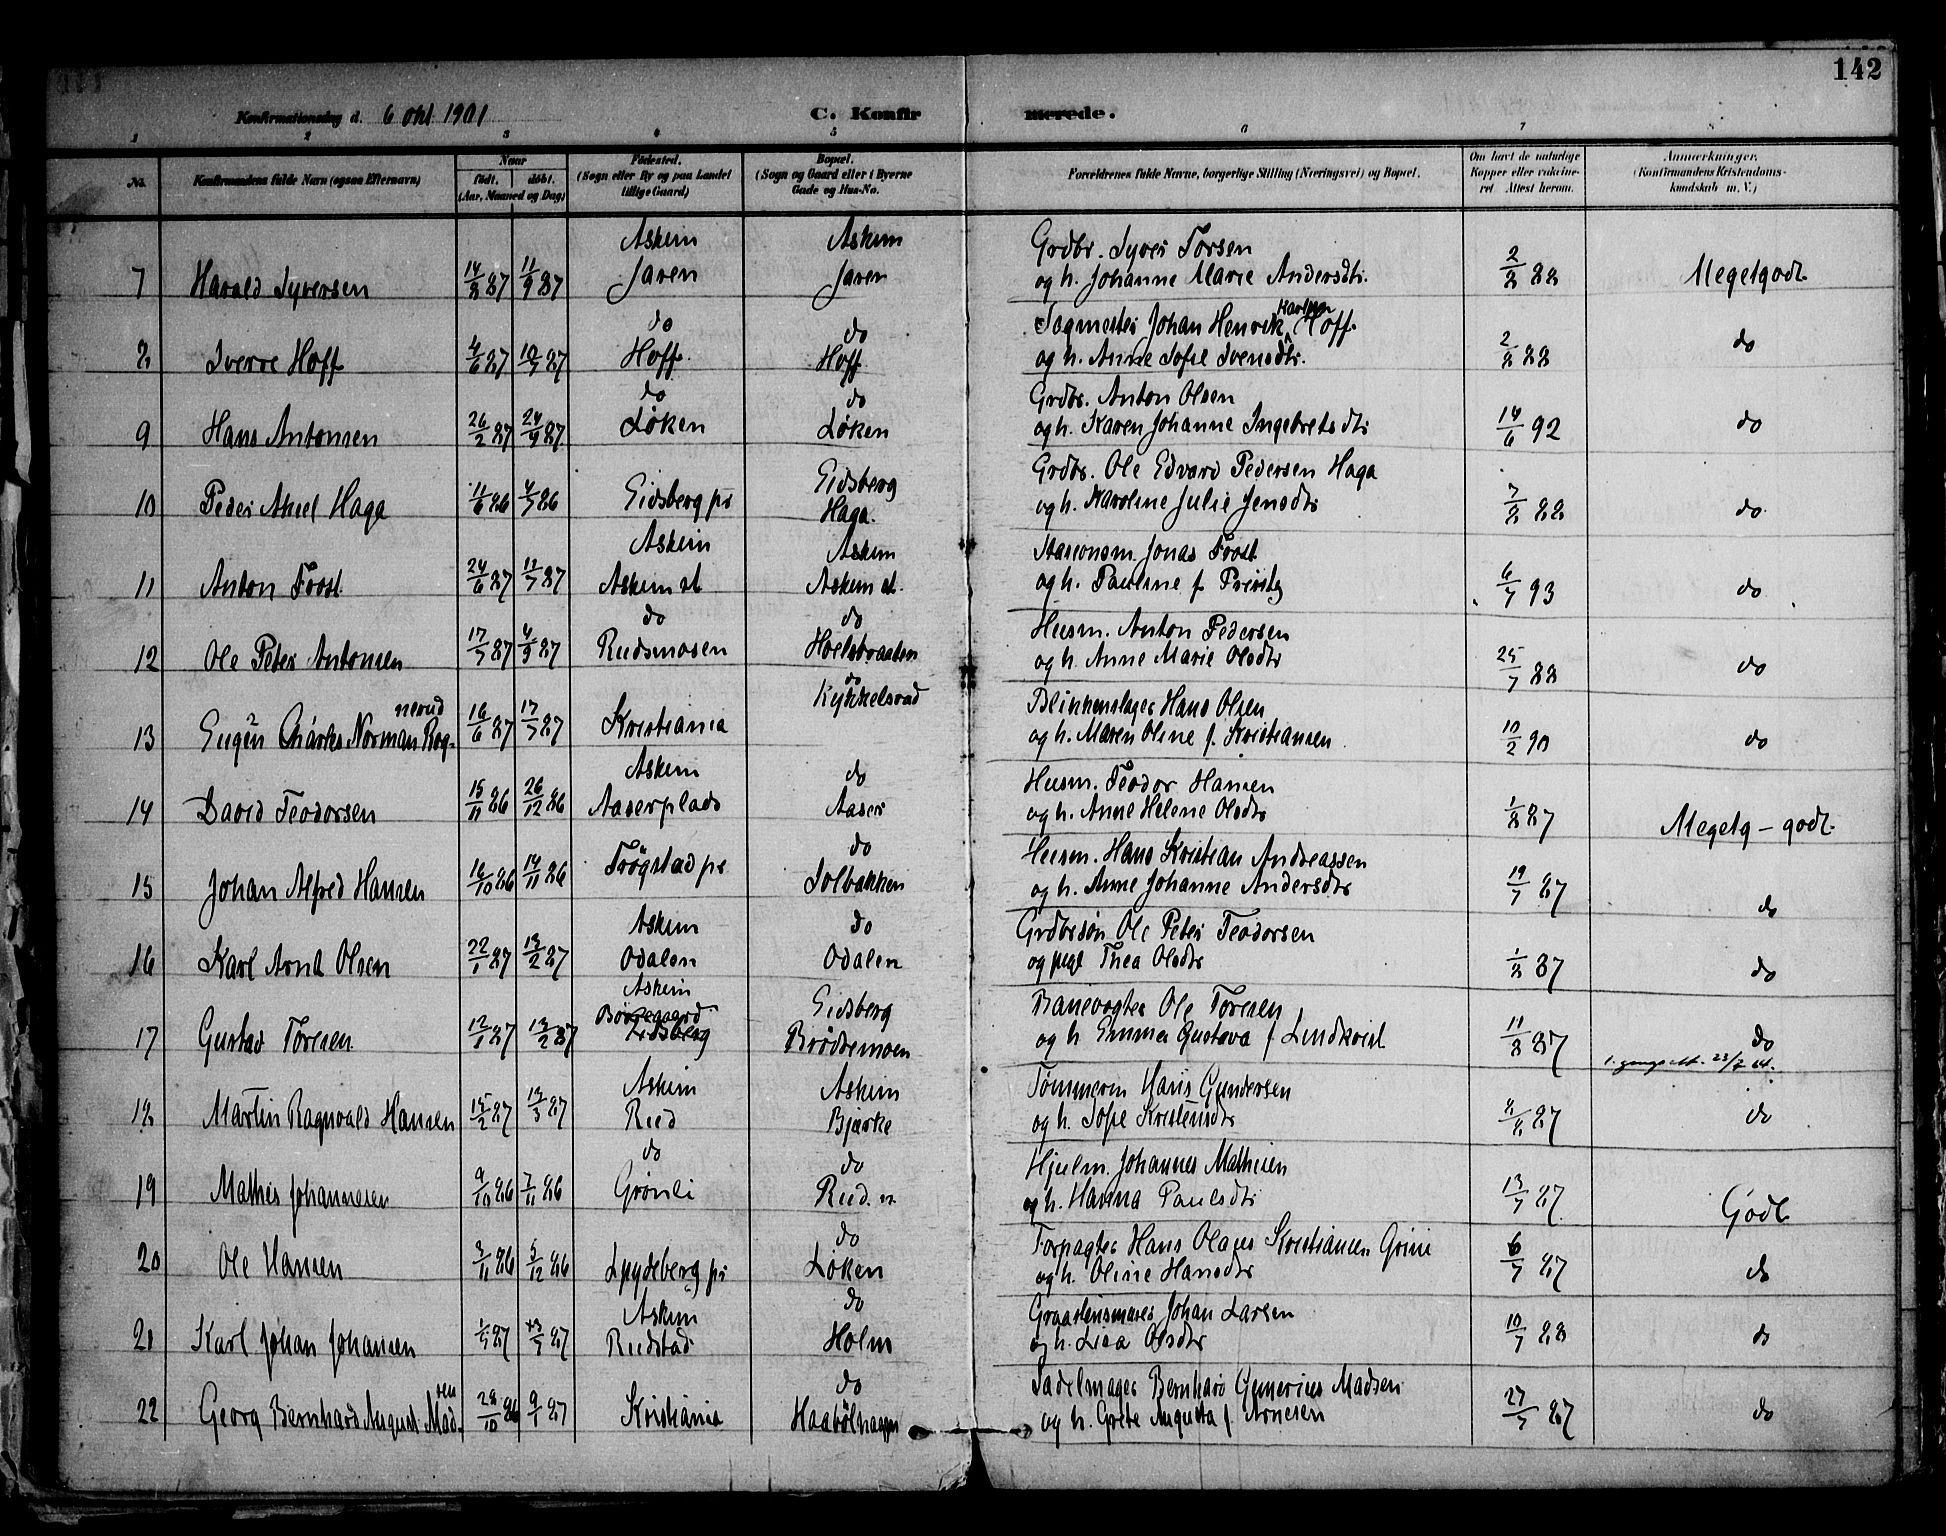 142
Konfirmationsdag d. 6 okt 1901 C. Konfirmerede.
1 2 3 4 5 6 7 8
No. Konfirmandens fulde Navn (ogsaa Efternavn) Naar født, døbt. (Aar, Maaned og Dag) Fødested. (Sogn eller By og paa Landet tillige Gaard) Bopæl. (Sogn og Gaard eller i Byerne Gade og Hus-No. Forældrenes fulde Navne, borgerlige Stilling (Næringsvei) og Bopæl. Om havt de naturlige Kopper eller vakcineret. Attest herom. Anmærkninger. (Konfirmandens Kristendomskundskab m. V.)
Askim Askim Grdbr. Syver Torsen
7 Harald Syversen 14/8 87 11/9 87 Jaren Jaren og h. Johanne Marie Andersdtr. 2/8 88 Megetgodt.
do do Sagmester Johan Henrik Karlsen Hoff.
8 Sverre Hoff 4/6 87 10/7 87 Hoff. Hoff. og h. Anne Sofie Svensdtr. 2/8 88 do
do do Grdbr. Anton Olsen
9 Hans Antonsen 26/2 87 24/4 87 Løken Løken og h. Karen Johanne Ingebretsdtr 14/6 92 do
Eidsberg Grdbr. Ole Edvard Pedersen Haga
10 Peder Aksel Haga 11/6 86 4/7 86 Eidsberg pr Haga. og h. Karoline Julie Jensdtr 7/8 88 do.
Askim Askim Stasionsm. Jonas Toost
11 Anton Toost. 24/6 87 17/7 87 Askim st Askim st. og h. Pauline f. 6/7 93 do
do do Husm. Anton Pedersen
12 Ole Peter Antonsen 17/7 87 4/9 87 Rudsmosen Hoelsbraaten og h. Anne Marie Olsdtr 25/7 88 do
nerud do Kykkelsrud Blikkenslager Hans Olsen
13 Eugen Charles Norman Rog- 16/6 87 17/7 87 Kristiania og h. Maren Oline f. Kristiansen 10/2 90 do
Askim do Husm. Teodor Hansen
14 David Teodorsen 15/11 86 26/12 86 Aaserplads Aaser og h. Anne Helene Olsdtr 1/8 87 Megetg - godt.
do Husm. Hans Kristian Andreassen
15 Johan Alfred Hansen 16/10 86 14/11 86 Trøgstad pr Solbakken og h. Anne Johanne Andersdtr 19/7 87 do
Askim do Grdbrsøn Ole Peter Teodorsen
16 Karl Arnt Olsen 22/1 87 13/2 87 Odalen Odalen og pige Thea Olsdtr 1/8 87 do
Askim Eidsberg Banevogter Ole Toresen
17 Gustav Toresen. 12/1 87 13/2 87 Børgegaard Eidsberg Brødremoen og h Emma Gustava f Lindkvist 11/8 87 do
23/7
Askim Askim Tømmerm Hans Gundersen
18 Martin Ragnvald Hansen 15/2 87 13/3 87 Rud Bjørke og h. Sofie Kristensdtr 8/8 87 do
do do Hjulm. Johannes Mathisen
19 Mathis Johannesen 9/10 86 7/11 86 Grønli Rud. og h. Hanna Paulsdtr 13/7 87 Godt
do Forpagter Hans Olaves Kristiansen Grini
20 Ole Hansen 3/11 86 5/12 86 Spydeberg pr Løken og h. Oline Hansdtr 6/7 87 do
Askim do Graastensmurer Johan Larsen
21 Karl Johan Johansen Rudstad Holm og h. Lisa Olsdtr 10/7 88 do
sen do Sadelmager Bernhard Gunerius Madsen
22 Georg Bernhard August Mad- 28/10 86 9/1 87 Kristiania Haabølhagen og h. Grete Augusta f. Arnesen 27/7 87 do